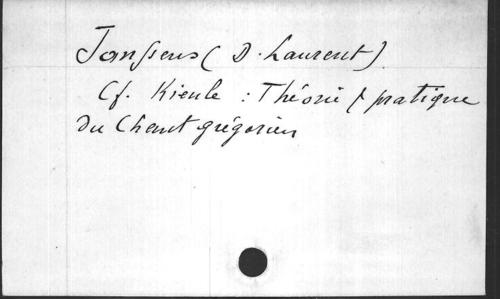 Janssens (D. Laurent).
Cf. Kienle : Théorie & pratique
du Chant grégorien